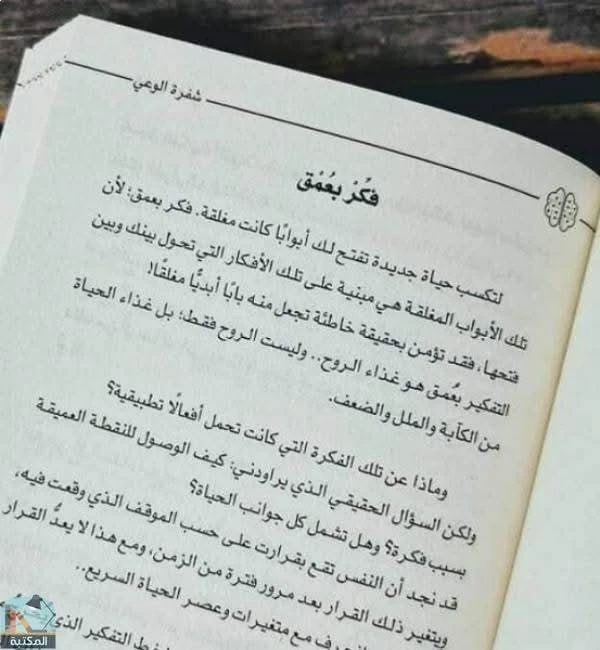 شفرة الوعي
فكِّرْ بعُمْق
لتكسب حياة جديدة تفتح لك أبوابًا كانت مغلقة. فكر بعمق؛ لأن
تلك الأبواب المغلقة هي مبنية على تلك الأفكار التي تحول بينك وبين
فتحها، فقد تؤمن بحقيقة خاطئة تجعل منه بابًا أبديًّا مغلقًا!
التفكير بعُمق هو غذاء الروح.. وليست الروح فقط؛ بل غذاء الحياة
من الكآبة والملل والضعف.
وماذا عن تلك الفكرة التي كانت تحمل أفعالًا تطبيقية؟
ولكن السؤال الحقيقي الذي يراودني: كيف الوصول للنقطة العميقة
بسبب فكرة؟ وهل تشمل كل جوانب الحياة؟
قد نجد أن النفس تقع بقرارت على حسب الموقف الذي وقعت فيه،
ويتغير ذلك القرار بعد مرور فترة من الزمن، ومع هذا لا يعدُّ القرار
مع متغيرات وعصر الحياة السريع..
التفكير الذي
المكتبة